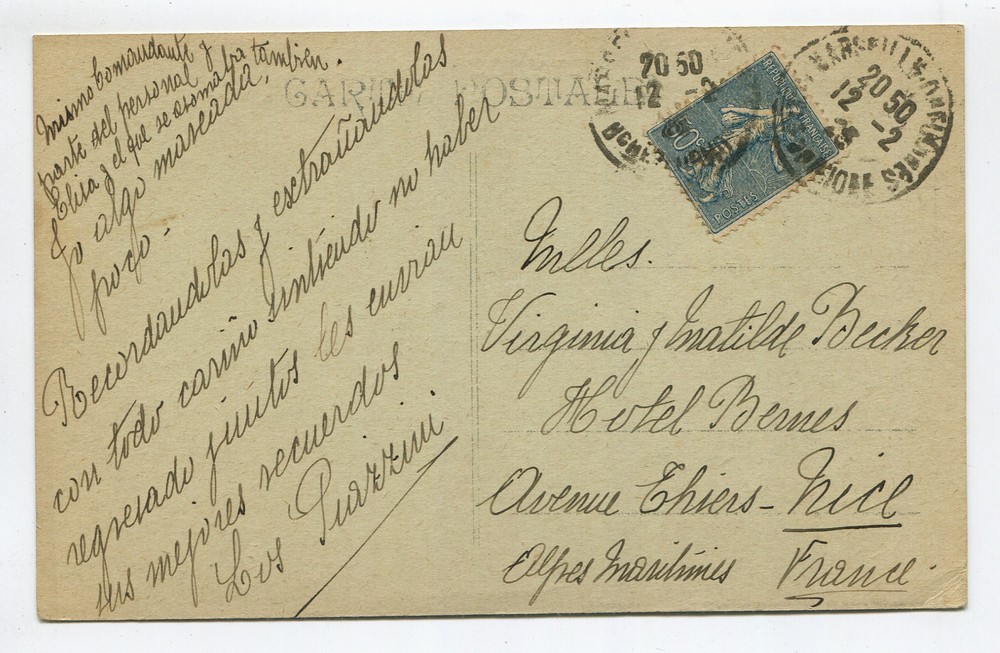 mismo Comandante y
parte del personal y
Elisa y el que se asomaba tambien.
yo algo mareada,
poco -
Recordandolas y extrañandolas
con todo cariño sintiendo no haber
regresado juntos les envian
sus mejores recuerdos
Los Piazzini
CARTE POSTALE
20 50
12 -2
REPUBLIQUE FRANÇAISE
50c
POSTES
MARSEILLE
20 50
12 -2
Mlles.
Virginia y Matilde Becker
Hotel Bernes
Avenue Thiers - Nice
Alpes Maritimes France.